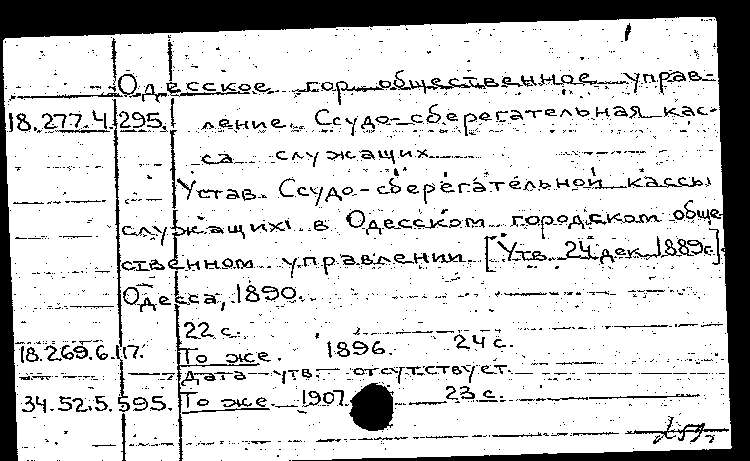 Одесское гор. общественное управ-
18.277.4.295. ление. Ссудо-сберегательная кас-
са служащих
Устав Ссудо-сберегательной кассы
служащих в Одесском городском обще-
ственном управлении [Утв. 24 дек. 1889г.].
Одесса, 1890.
22 с.
18.269.6.117. То же. 1896. 24 с.
Дата утв. отсутствует.
34.52.5.595. То же. 1907. 23 с.